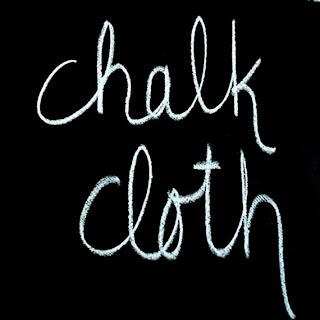 chalk
cloth